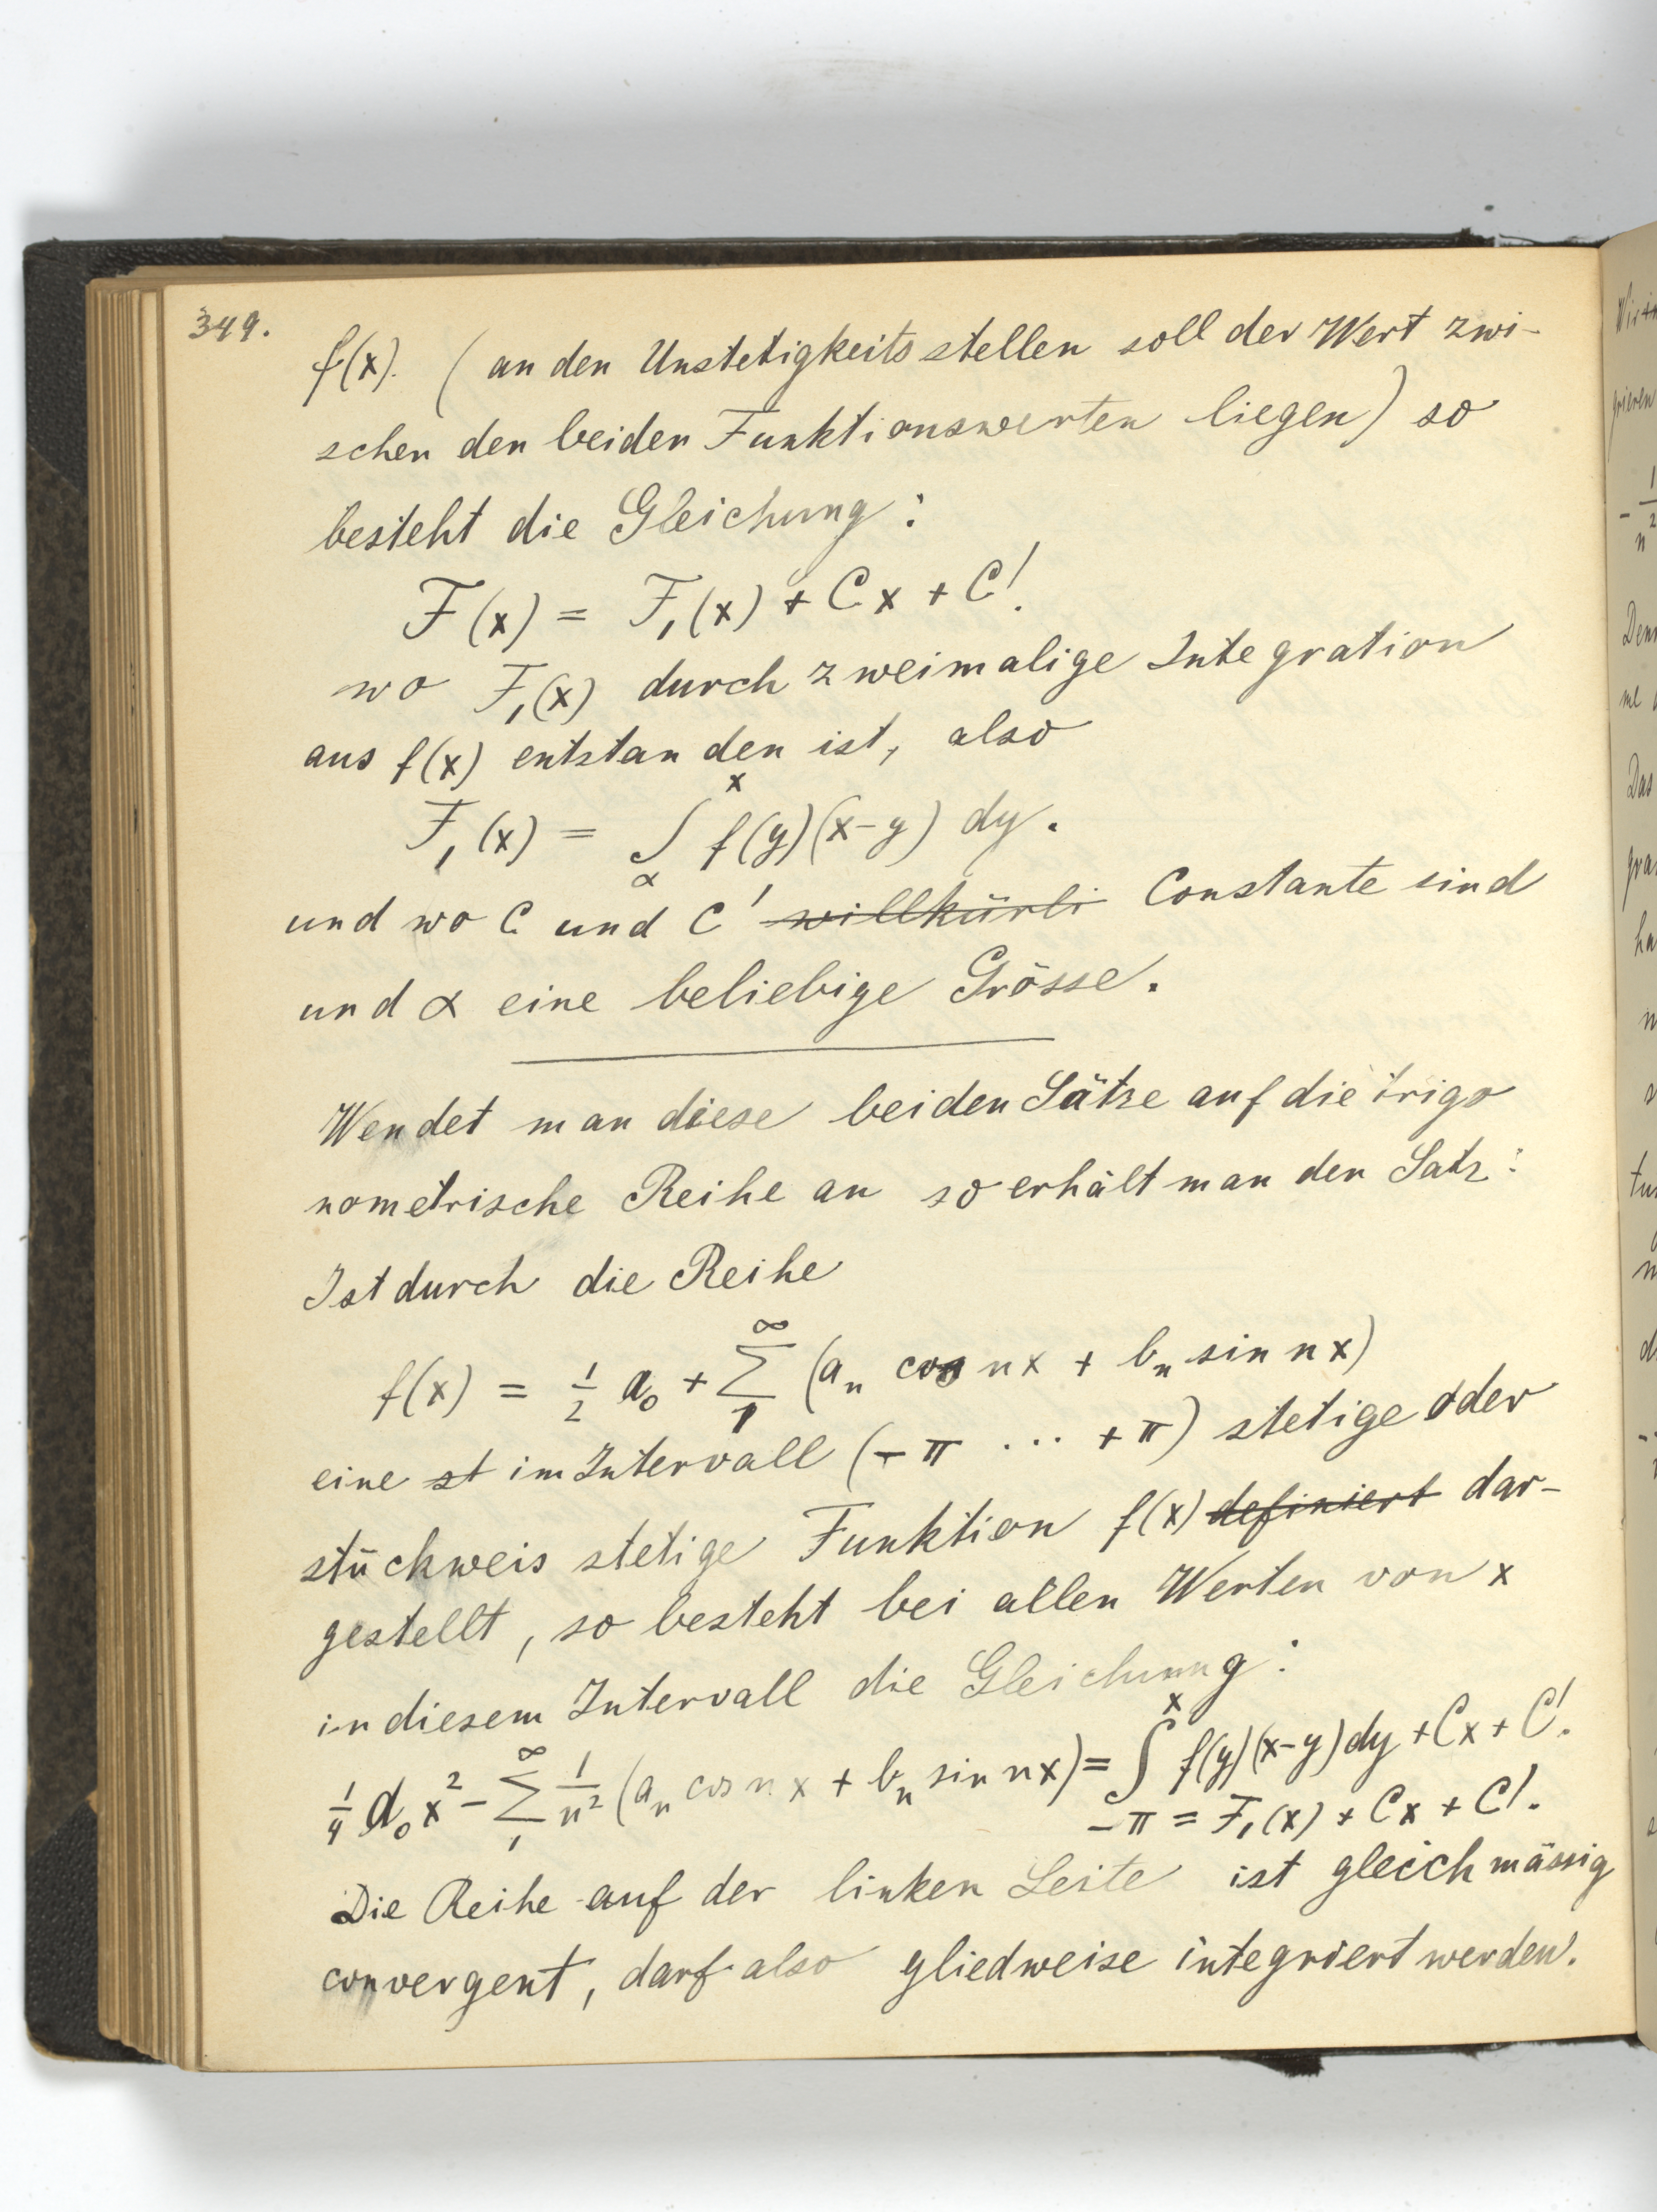 349.
f(x). (an den Unstetigkeitsstellen soll der Wert zwi-
schen den beiden Funktionswerten liegen) so
besteht die Gleichung:
F(x) = F₁(x) + Cx + C'.
wo F₁(x) durch zweimalige Integration
aus f(x) entstanden ist, also
F₁(x) = ∫_α^x f(y)(x-y) dy.
und wo C und C' ~~willkürli~~ Constante sind
und α eine beliebige Grösse.
Wendet man diese beiden Sätze auf die trigo
nometrische Reihe an so erhält man den Satz:
Ist durch die Reihe
f(x) = 1/2 a₀ + ∑_1^∞ (aₙ cos nx + bₙ sin nx)
eine ~~st~~ im Intervall (-π ... +π) stetige oder
stückweis stetige Funktion f(x) ~~definiert~~ dar-
gestellt, so besteht bei allen Werten von x
in diesem Intervall die Gleichung:
1/4 a₀x² - ∑_1^∞ 1/n² (aₙ cos nx + bₙ sin nx) = ∫_{-π}^x f(y)(x-y)dy + Cx + C'.
= F₁(x) + Cx + C'.
Die Reihe auf der linken Seite ist gleichmässig
convergent, darf also gliedweise integriert werden.